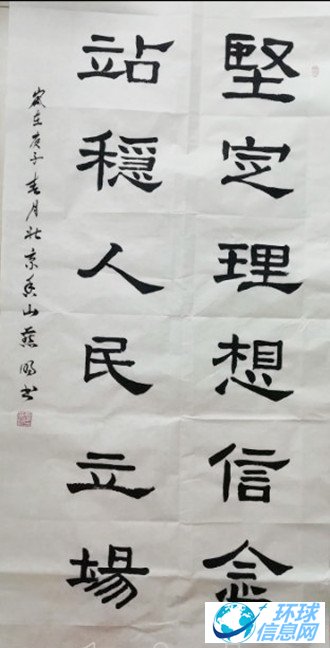 堅定理想信念
站穩人民立場
歲在庚子春月北京香山燕鳴书
环球
信息网